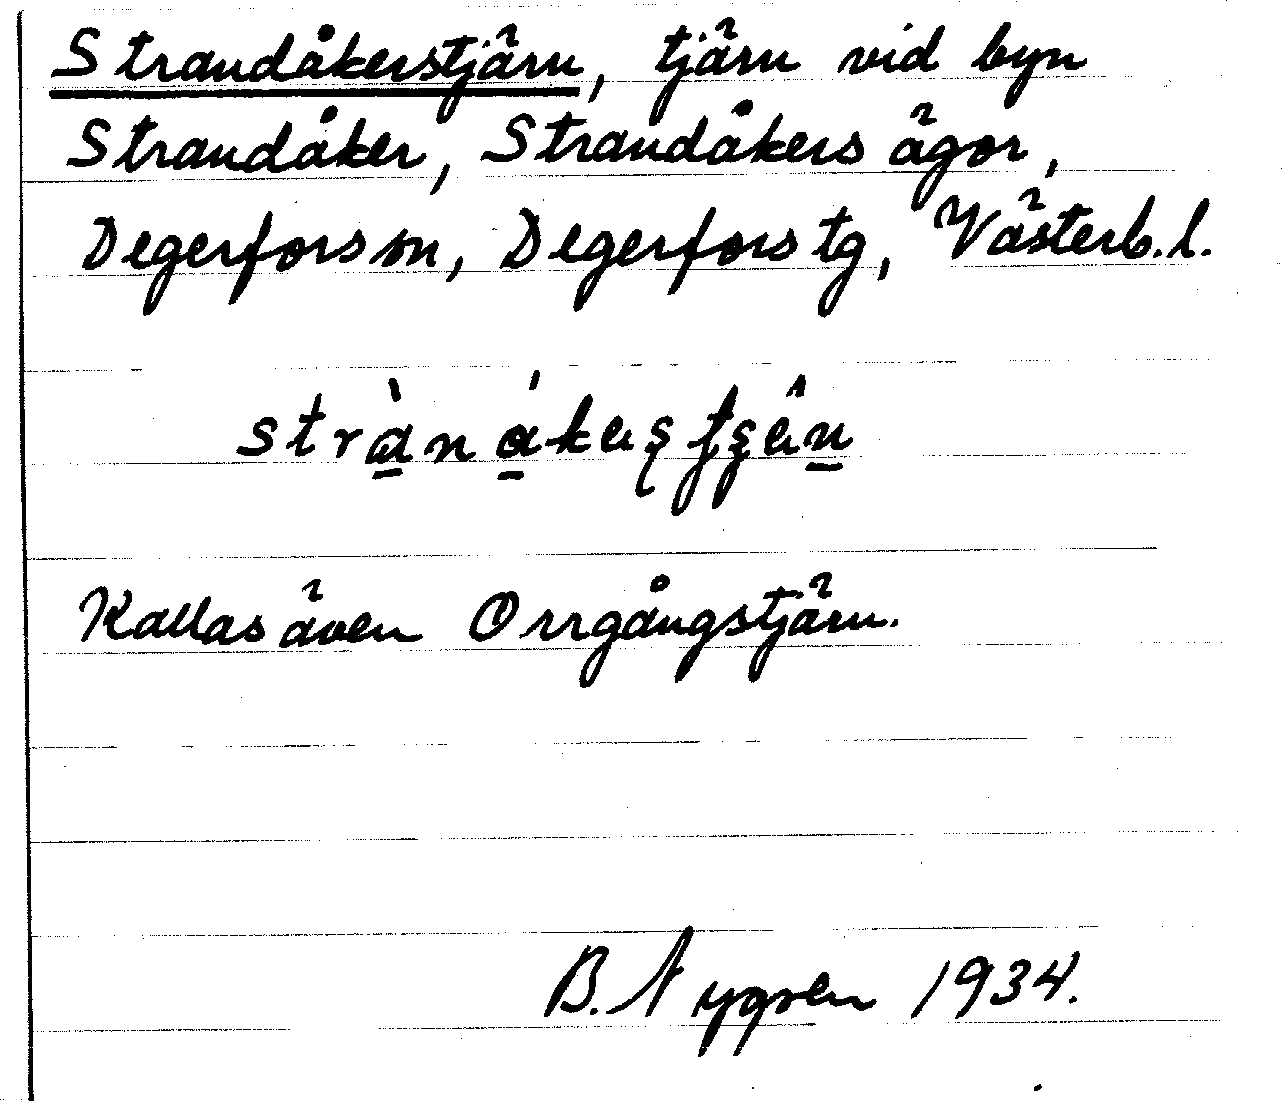 Strandåkerstjärn, tjärn vid byn
Strandåker, Strandåkers ägor,
Degerfors sn, Degerfors tg, Västerb. l.
Kallas även Orrgångstjärn.
B. Nygren 1934.